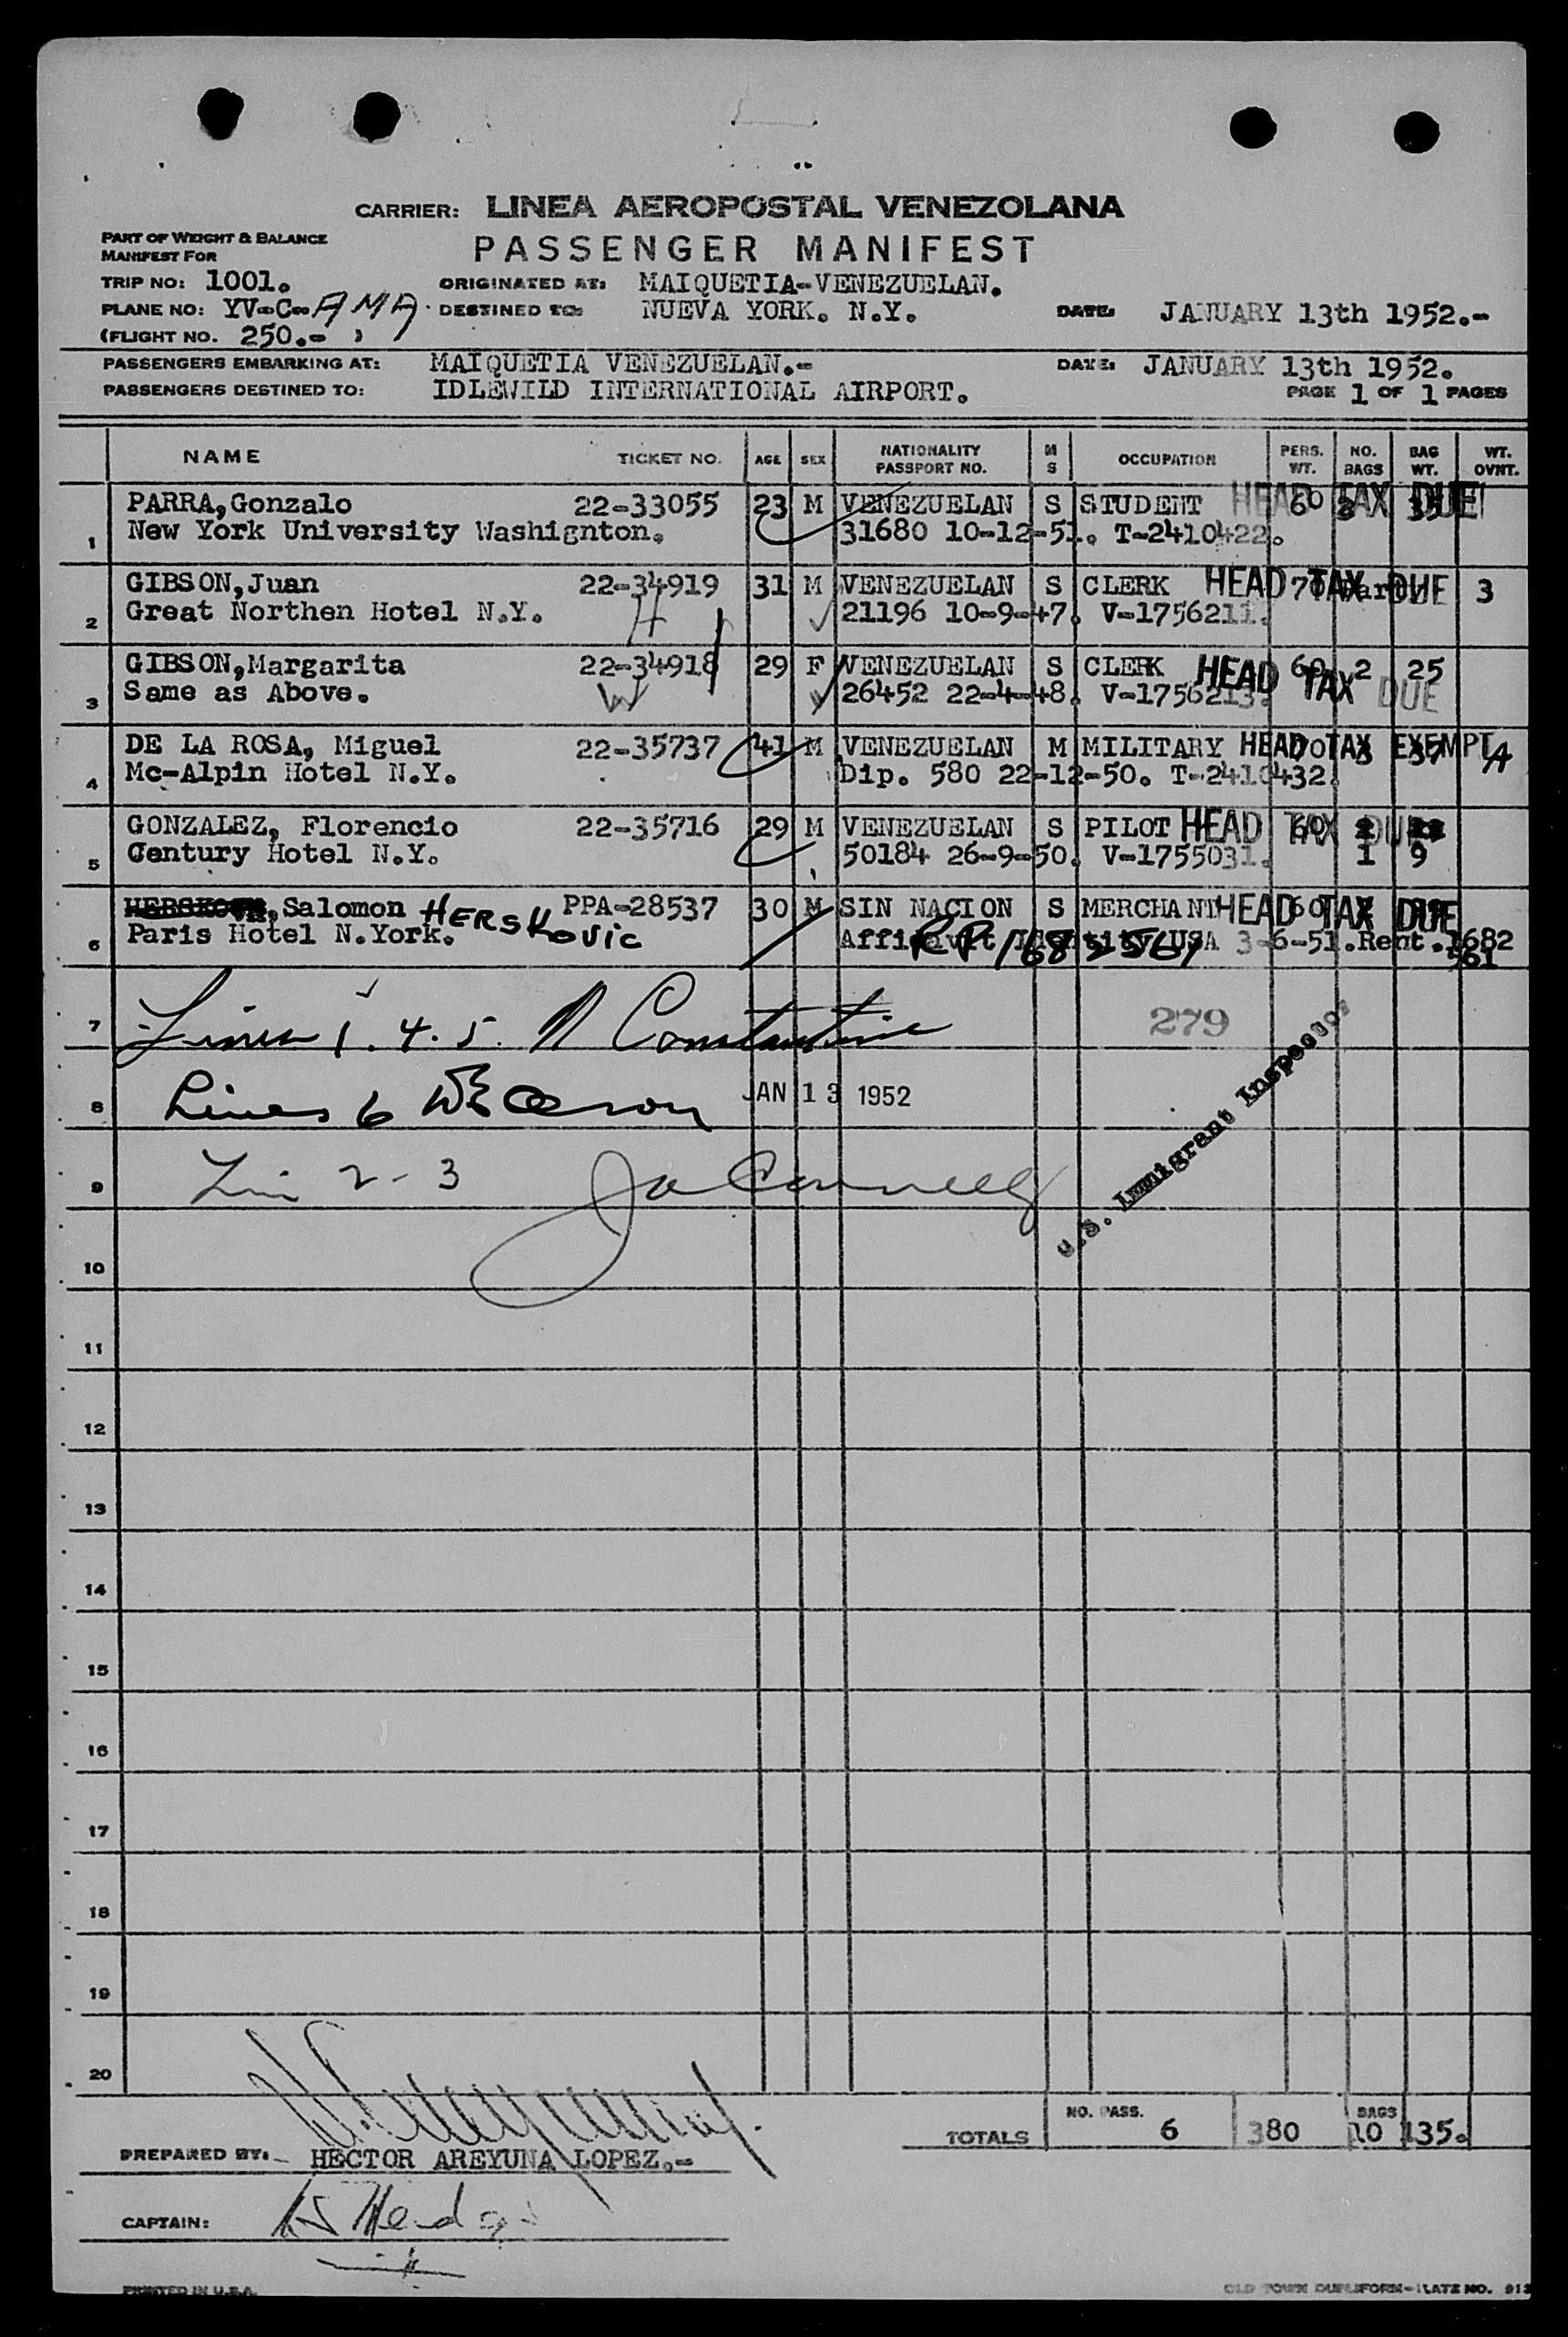 CARRIER: LINEA AEROPOSTAL VENEZOLANA
PART OF WEIGHT & BALANCE
MANIFEST FOR
PASSENGER MANIFEST
TRIP NO: 1001. ORIGINATED AT: MAIQUETIA-VENEZUELAN.
PLANE NO: YV-C-AMA. DESTINED TO: NUEVA YORK. N.Y. DATE: JANUARY 13th 1952.-
(FLIGHT NO. 250.- )
PASSENGERS EMBARKING AT: MAIQUETIA VENEZUELAN.- DATE: JANUARY 13th 1952.
PASSENGERS DESTINED TO: IDLEWILD INTERNATIONAL AIRPORT. PAGE 1 OF 1 PAGES
NAME TICKET NO. AGE SEX NATIONALITY PASSPORT NO. M S OCCUPATION PERS. WT. NO. BAGS BAG WT. WT. OVNT.
PARRA,Gonzalo 22-33055 23 M VENEZUELAN S STUDENT 60 HEAD TAX DUE
1 New York University Washignton. 31680 10-12-51. T-2410422.
GIBSON,Juan 22-34919 31 M VENEZUELAN S CLERK HEAD TAX DUE 3
2 Great Northen Hotel N.Y. H 21196 10-9-47. V-1756211.
GIBSON,Margarita 22-34918 29 F VENEZUELAN S CLERK 60 2 25 HEAD TAX DUE
3 Same as Above. W 26452 22-4-48. V-1756213.
DE LA ROSA, Miguel 22-35737 41 M VENEZUELAN M MILITARY HEAD TAX EXEMPT 70 3 37 A
4 Mc-Alpin Hotel N.Y. Dip. 580 22-12-50. T-2410432.
GONZALEZ, Florencio 22-35716 29 M VENEZUELAN S PILOT HEAD TAX DUE 60
5 Century Hotel N.Y. 50184 26-9-50. V-1755031. 1 9
,Salomon HERSKOVIC PPA-28537 30 M SIN NACION S MERCHANT HEAD TAX DUE 60
6 Paris Hotel N.York. Affidavit Identity USA 3-6-51.Rent.1682
561
RP 1682561
7 Lines 1. 4. 5. N Constantine 279
8 Lines 6 JAN 13 1952
U.S. Immigrant Inspector
9 Lin 2-3
10
11
12
13
14
15
16
17
18
19
20
TOTALS NO. PASS. 6 380 BAGS 10 135.
PREPARED BY: HECTOR AREYUNA LOPEZ.-
CAPTAIN:
PRINTED IN U.S.A.
OLD TOWN DUPLIFORM-PLATE NO. 913